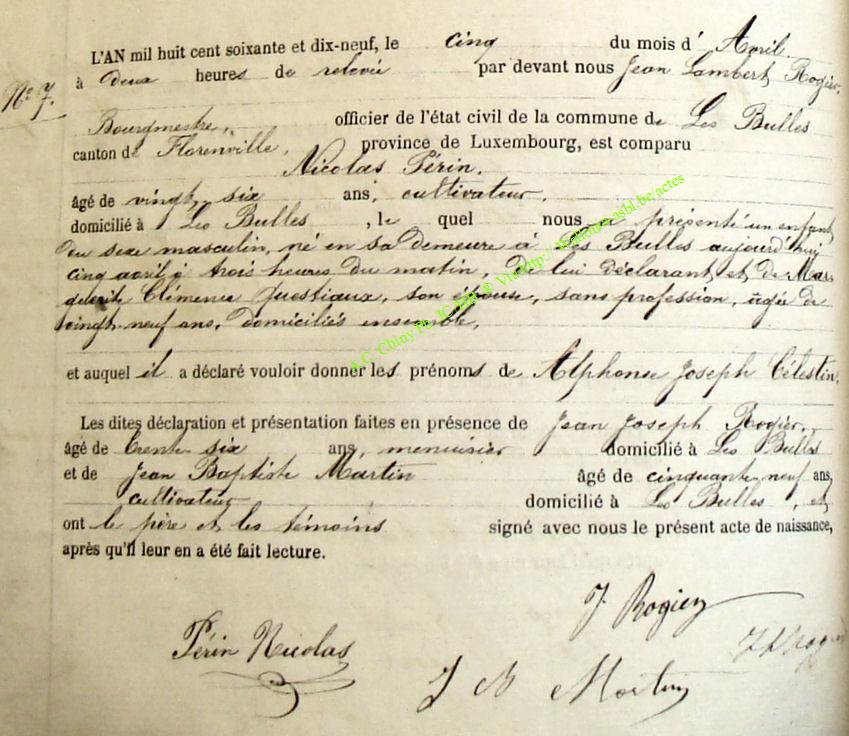 L'AN mil huit cent soixante et dix-neuf, le cinq du mois d' Avril
à deux heures de relevée par devant nous Jean Lambert Rogier,
N° 7.
Bourgmestre, officier de l'état civil de la commune de Les Bulles
canton de Florenville, province de Luxembourg, est comparu
Nicolas Périn,
âgé de vingt six ans, cultivateur,
domicilié à Les Bulles, le quel nous a présenté un enfant
du sexe masculin, né en sa demeure à Les Bulles aujourd'hui
cinq avril à trois heures du matin, de lui déclarant et de Mar-
guerite Clémence Questiaux, son épouse, sans profession, âgée de
vingt-neuf ans, domiciliés ensemble,
et auquel il a déclaré vouloir donner les prénoms de Alphonse Joseph Célestin.
Les dites déclaration et présentation faites en présence de Jean Joseph Rogier,
âgé de trente six ans, menuisier domicilié à Les Bulles
et de Jean Baptiste Martin âgé de cinquante neuf ans,
cultivateur domicilié à Les Bulles, et
ont le père et les témoins signé avec nous le présent acte de naissance,
après qu'il leur en a été fait lecture.
J. Rogier
Périn Nicolas
J B Martin